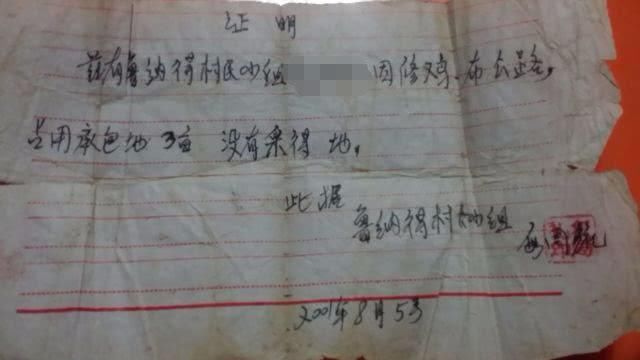 证明
兹有鲁纳得村民小组 因修 布公路,
占用承包地3亩 没有采得 地。
此据
鲁纳得村小组
2001年8月5号